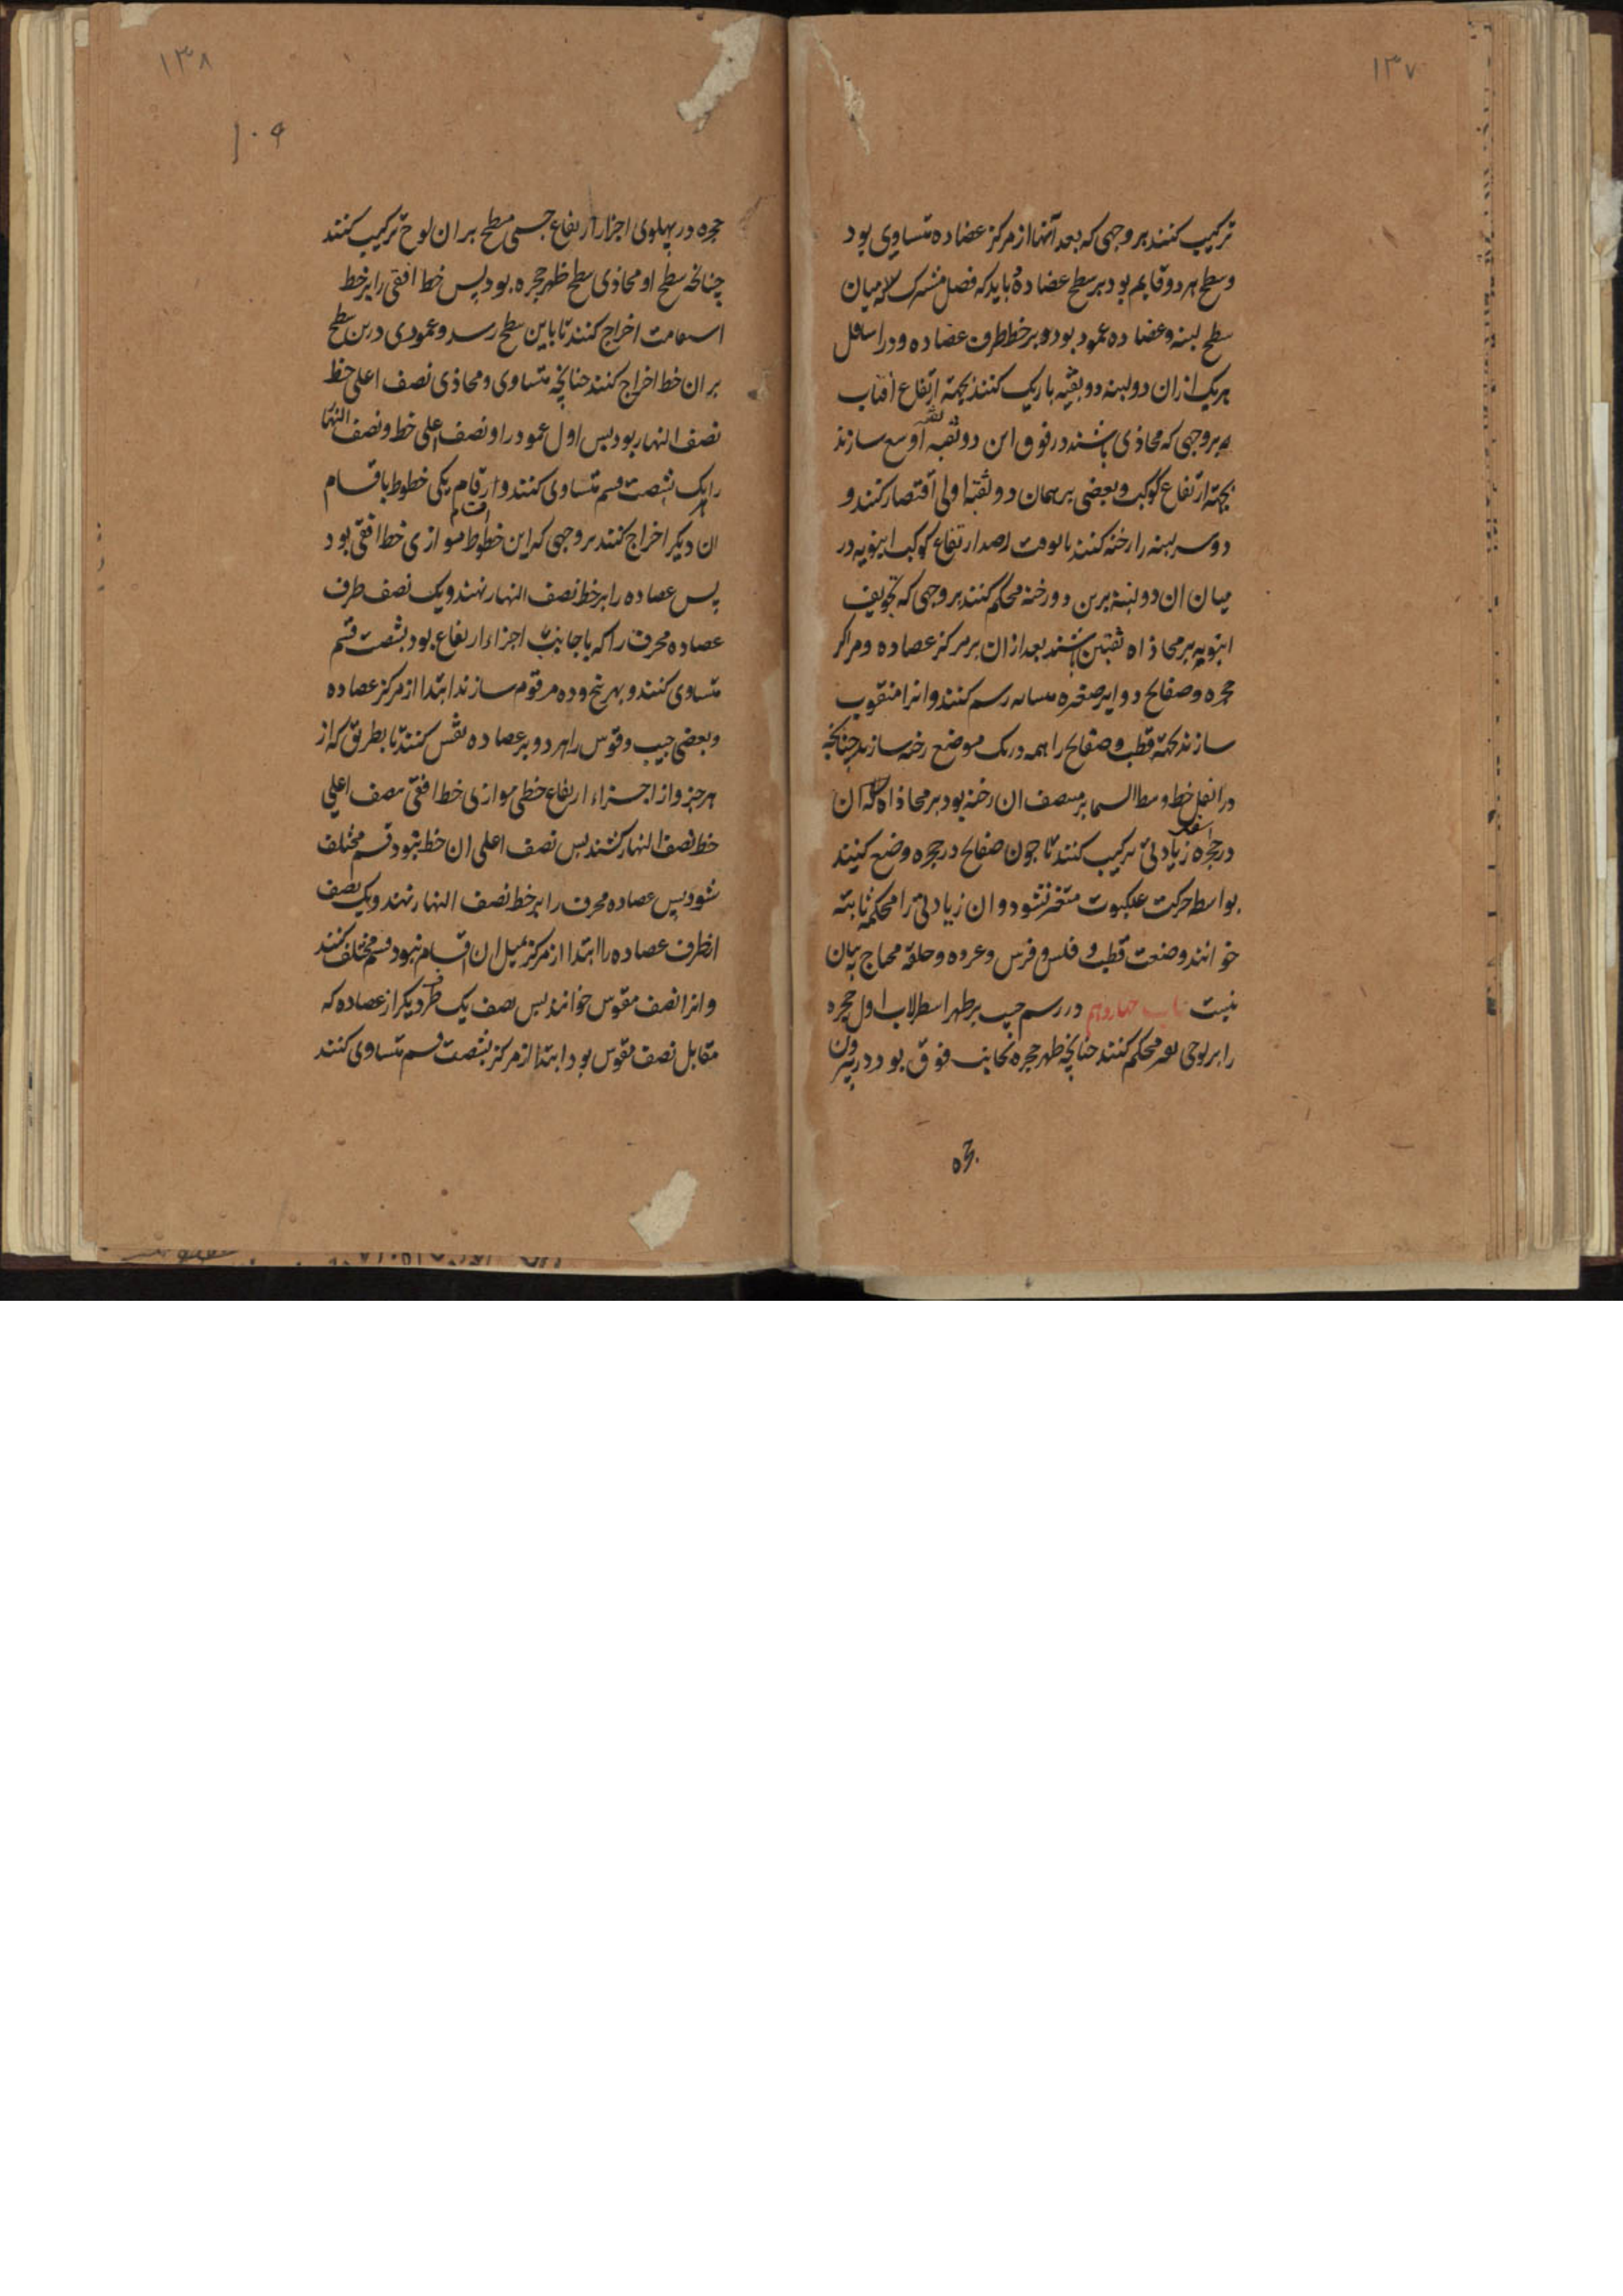 ۱۳۷
ترکیب کنند بر وجهی که بعد آنها از مرکز عضاده متساوی بود
و سطح هر دو قایم بود بر سطح عضاده و باید که فصل مشترک میان
سطح لبنه و عضاده عمود بود بر خط طرف عضاده و در اسافل
هر یک از ان دو لبنه دو ثقبه باریک کنند بجهة ارتفاع افتاب
بر وجهی که محاذی باشند در فوق این دو ثقبه اوسع سازند
بجهة ارتفاع کوکب و بعضی بر همان دو ثقبه اولی اقتصار کنند و
دو سر لبنه را رخنه کنند تا بوقت ارصد ارتفاع کوکب انبوبه در
میان ان دو لبنه برین دو رخنه محکم کنند بر وجهی که تجویف
انبوبه بر محاذاه ثقبتین باشند بعد از ان بر مرکز عضاده و مراکز
حجره و صفایح دوایر صغیره متساویه رسم کنند و انرا منقوب
سازند بجهة قطب و صفایح را همه در یک موضع رخنه سازند چنانچه
خط وسط السما بر منتصف ان رخنه بود بر محاذاه ان
در حجره زیادتی ترکیب کنند تا چون صفایح در حجره وضع کنند
بواسطه حرکت عنکبوت متغیر نشود و ان زیادتی را محکمه ثابته
خوانند و صنعت قطب و فلس و فرس و عروه و حلقه محتاج به بیان
نیست باب چهاردهم در رسم جیب بر ظهر اسطرلاب اول حجره
را بر لوحی محکم کنند چنانچه ظهر حجره بجانب فوق بود در بیرون
حجره
۱۳۸
۱۰۹
حجره در پهلوی اجزا ارتفاع جسمی مسطح بر ان لوح ترکیب کنند
چنانچه سطح او محاذی سطح ظهر حجره بود پس خط افقی را بر خط
استقامت اخراج کنند تا باین سطح رسد و عمودی درین سطح
بر ان خط اخراج کنند چنانچه متساوی و محاذی نصف اعلی خط
نصف النهار بود پس اول عمود را و نصف اعلی خط و نصف النها
را یک بشصت قسم متساوی کنند و از اقسام یکی خطوط باقسام
ان دیگر اخراج کنند بر وجهی که این خطوط موازی خط افقی بود
پس عضاده را بر خط نصف النهار نهند و یک نصف طرف
عضاده محرف را که با جانب اجزاء ارتفاع بود بشصت قسم
متساوی کنند و بهر پنج و ده مرقوم سازند ابتدا از مرکز عضاده
و بعضی جیب و قوس را هر دو بر عضاده نقش کنند تا بطریق که از
هر جزو از اجزاء ارتفاع خطی موازی خط افقی نصف اعلی
خط نصف النهار کشند پس نصف اعلی ان خط بنود قسم مختلف
شود پس عضاده محرف را بر خط نصف النهار نهند و یک نصف
انطرف عضاده را ابتدا از مرکز بمثل ان اقسام بنود قسم مختلف کنند
و انرا نصف مقوس خوانند پس نصف یک طرف دیگر از عضاده که
مقابل نصف مقوس بود ابتدا از مرکز بشصت قسم متساوی کنند